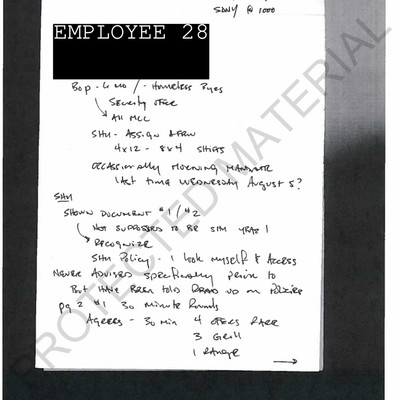 SDNY @ 1000
EMPLOYEE 28
BOP - 6 mo / - Homeless Byes
Security Office
All MCC
SHU - Assign
4x12 - 8x4 Shifts
Occassionally Morning
Last time Wednesday August 5?
SHU
Shown Document #1/#2
Not supposed to be SHU YEAR 1
Recognize
SHU Policy - I look myself & Access
Never Advised specifically prior to
But have been told Read up on Policies
pg 2 #1 30 minute Rounds
Agrees - 30 min 4
3 Grill
1 Range
PROTECTED MATERIAL